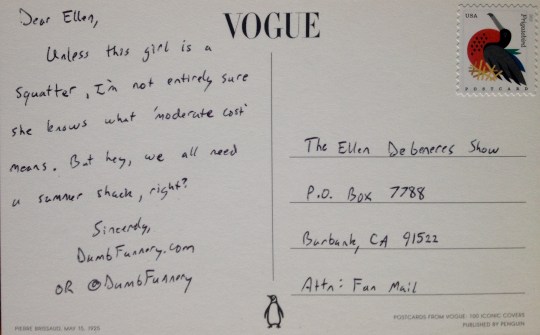 Dear Ellen,
Unless this girl is a
squatter, I'm not entirely sure
she knows what 'moderate cost'
means. But hey, we all need
a summer shack, right?
Sincerely,
DumbFunnery.com
OR @DumbFunnery
PIERRE BRISSAUD, MAY 15, 1925
VOGUE
USA
POSTCARD
The Ellen Degeneres Show
P.O. Box 7788
Burbank, CA 91522
Attn: Fan Mail
POSTCARDS FROM VOGUE: 100 ICONIC COVERS
PUBLISHED BY PENGUIN